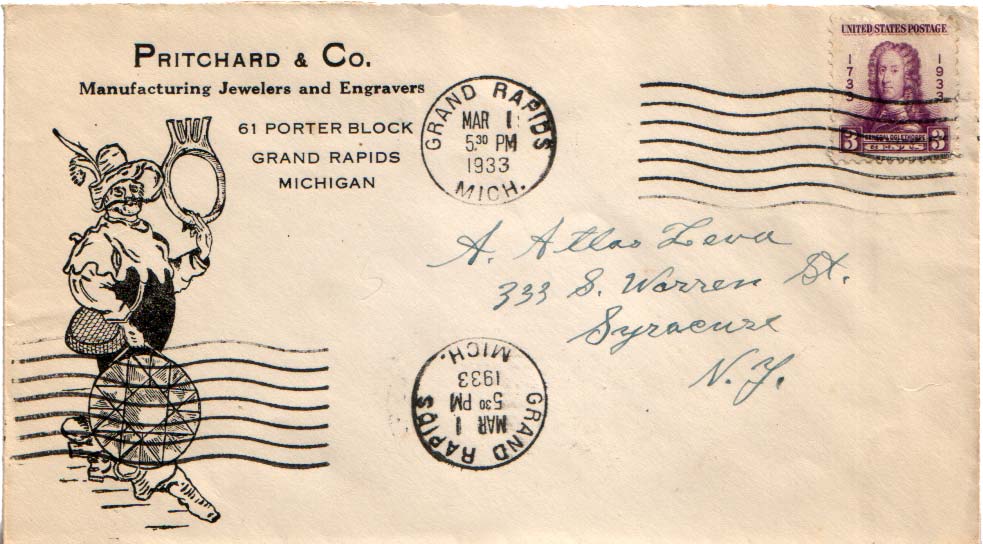 PRITCHARD & CO.
Manufacturing Jewelers and Engravers
61 PORTER BLOCK
GRAND RAPIDS
MICHIGAN
GRAND RAPIDS
MAR 1
5:30 PM
1933
MICH.
UNITED STATES POSTAGE
1733 1933
3 GENERAL OGLETHORPE 3
CENTS
A. Atlas Leva
333 S. Warren St.
Syracuse
N.Y.
GRAND RAPIDS
MAR 1
5:30 PM
1933
MICH.